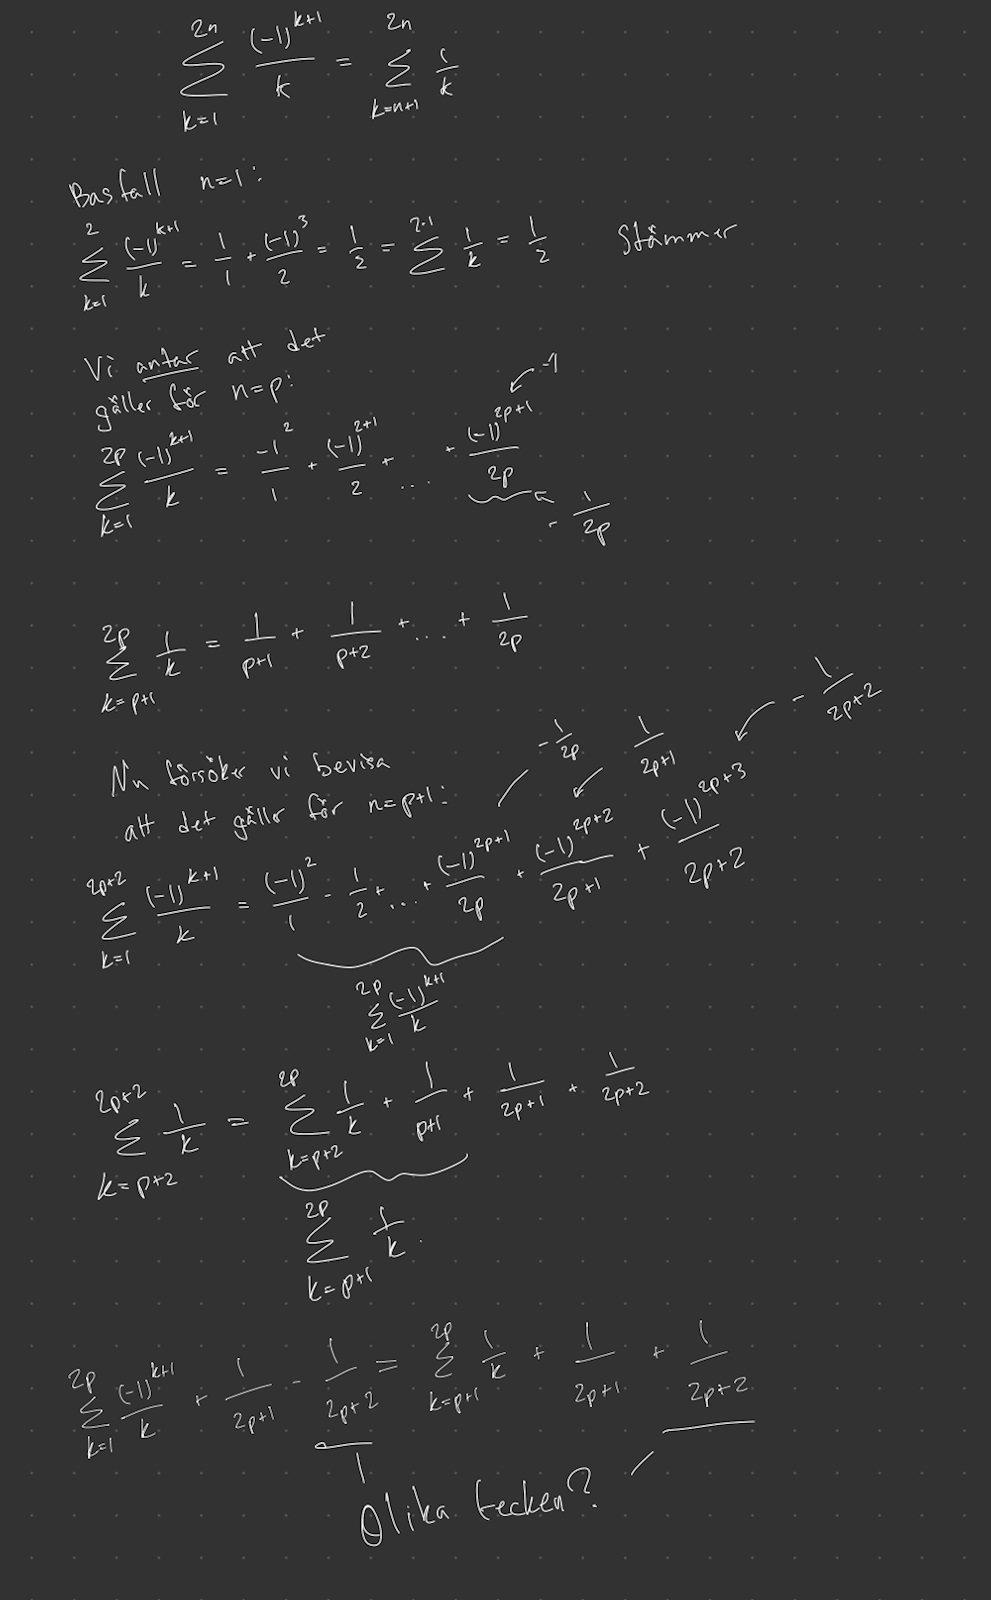 \sum_{k=1}^{2n} \frac{(-1)^{k+1}}{k} = \sum_{k=n+1}^{2n} \frac{1}{k}
Basfall n=1:
\sum_{k=1}^{2} \frac{(-1)^{k+1}}{k} = \frac{1}{1} + \frac{(-1)^3}{2} = \frac{1}{2} = \sum^{2 \cdot 1} \frac{1}{k} = \frac{1}{2} Stämmer
Vi antar att det
gäller för n=p:
\sum_{k=1}^{2p} \frac{(-1)^{k+1}}{k} = \frac{-1^2}{1} + \frac{(-1)^{2+1}}{2} + ... + \frac{(-1)^{2p+1}}{2p}
-1
-\frac{1}{2p}
\sum_{k=p+1}^{2p} \frac{1}{k} = \frac{1}{p+1} + \frac{1}{p+2} + ... + \frac{1}{2p}
Nu försöker vi bevisa
att det gäller för n=p+1:
-\frac{1}{2p} \frac{1}{2p+1} -\frac{1}{2p+2}
\sum_{k=1}^{2p+2} \frac{(-1)^{k+1}}{k} = \frac{(-1)^2}{1} - \frac{1}{2} + ... + \frac{(-1)^{2p+1}}{2p} + \frac{(-1)^{2p+2}}{2p+1} + \frac{(-1)^{2p+3}}{2p+2}
\sum_{k=1}^{2p} \frac{(-1)^{k+1}}{k}
\sum_{k=p+2}^{2p+2} \frac{1}{k} = \sum_{k=p+2}^{2p} \frac{1}{k} + \frac{1}{p+1} + \frac{1}{2p+1} + \frac{1}{2p+2}
\sum_{k=p+1}^{2p} \frac{1}{k}.
\sum_{k=1}^{2p} \frac{(-1)^{k+1}}{k} + \frac{1}{2p+1} - \frac{1}{2p+2} = \sum_{k=p+1}^{2p} \frac{1}{k} + \frac{1}{2p+1} + \frac{1}{2p+2}
Olika tecken?